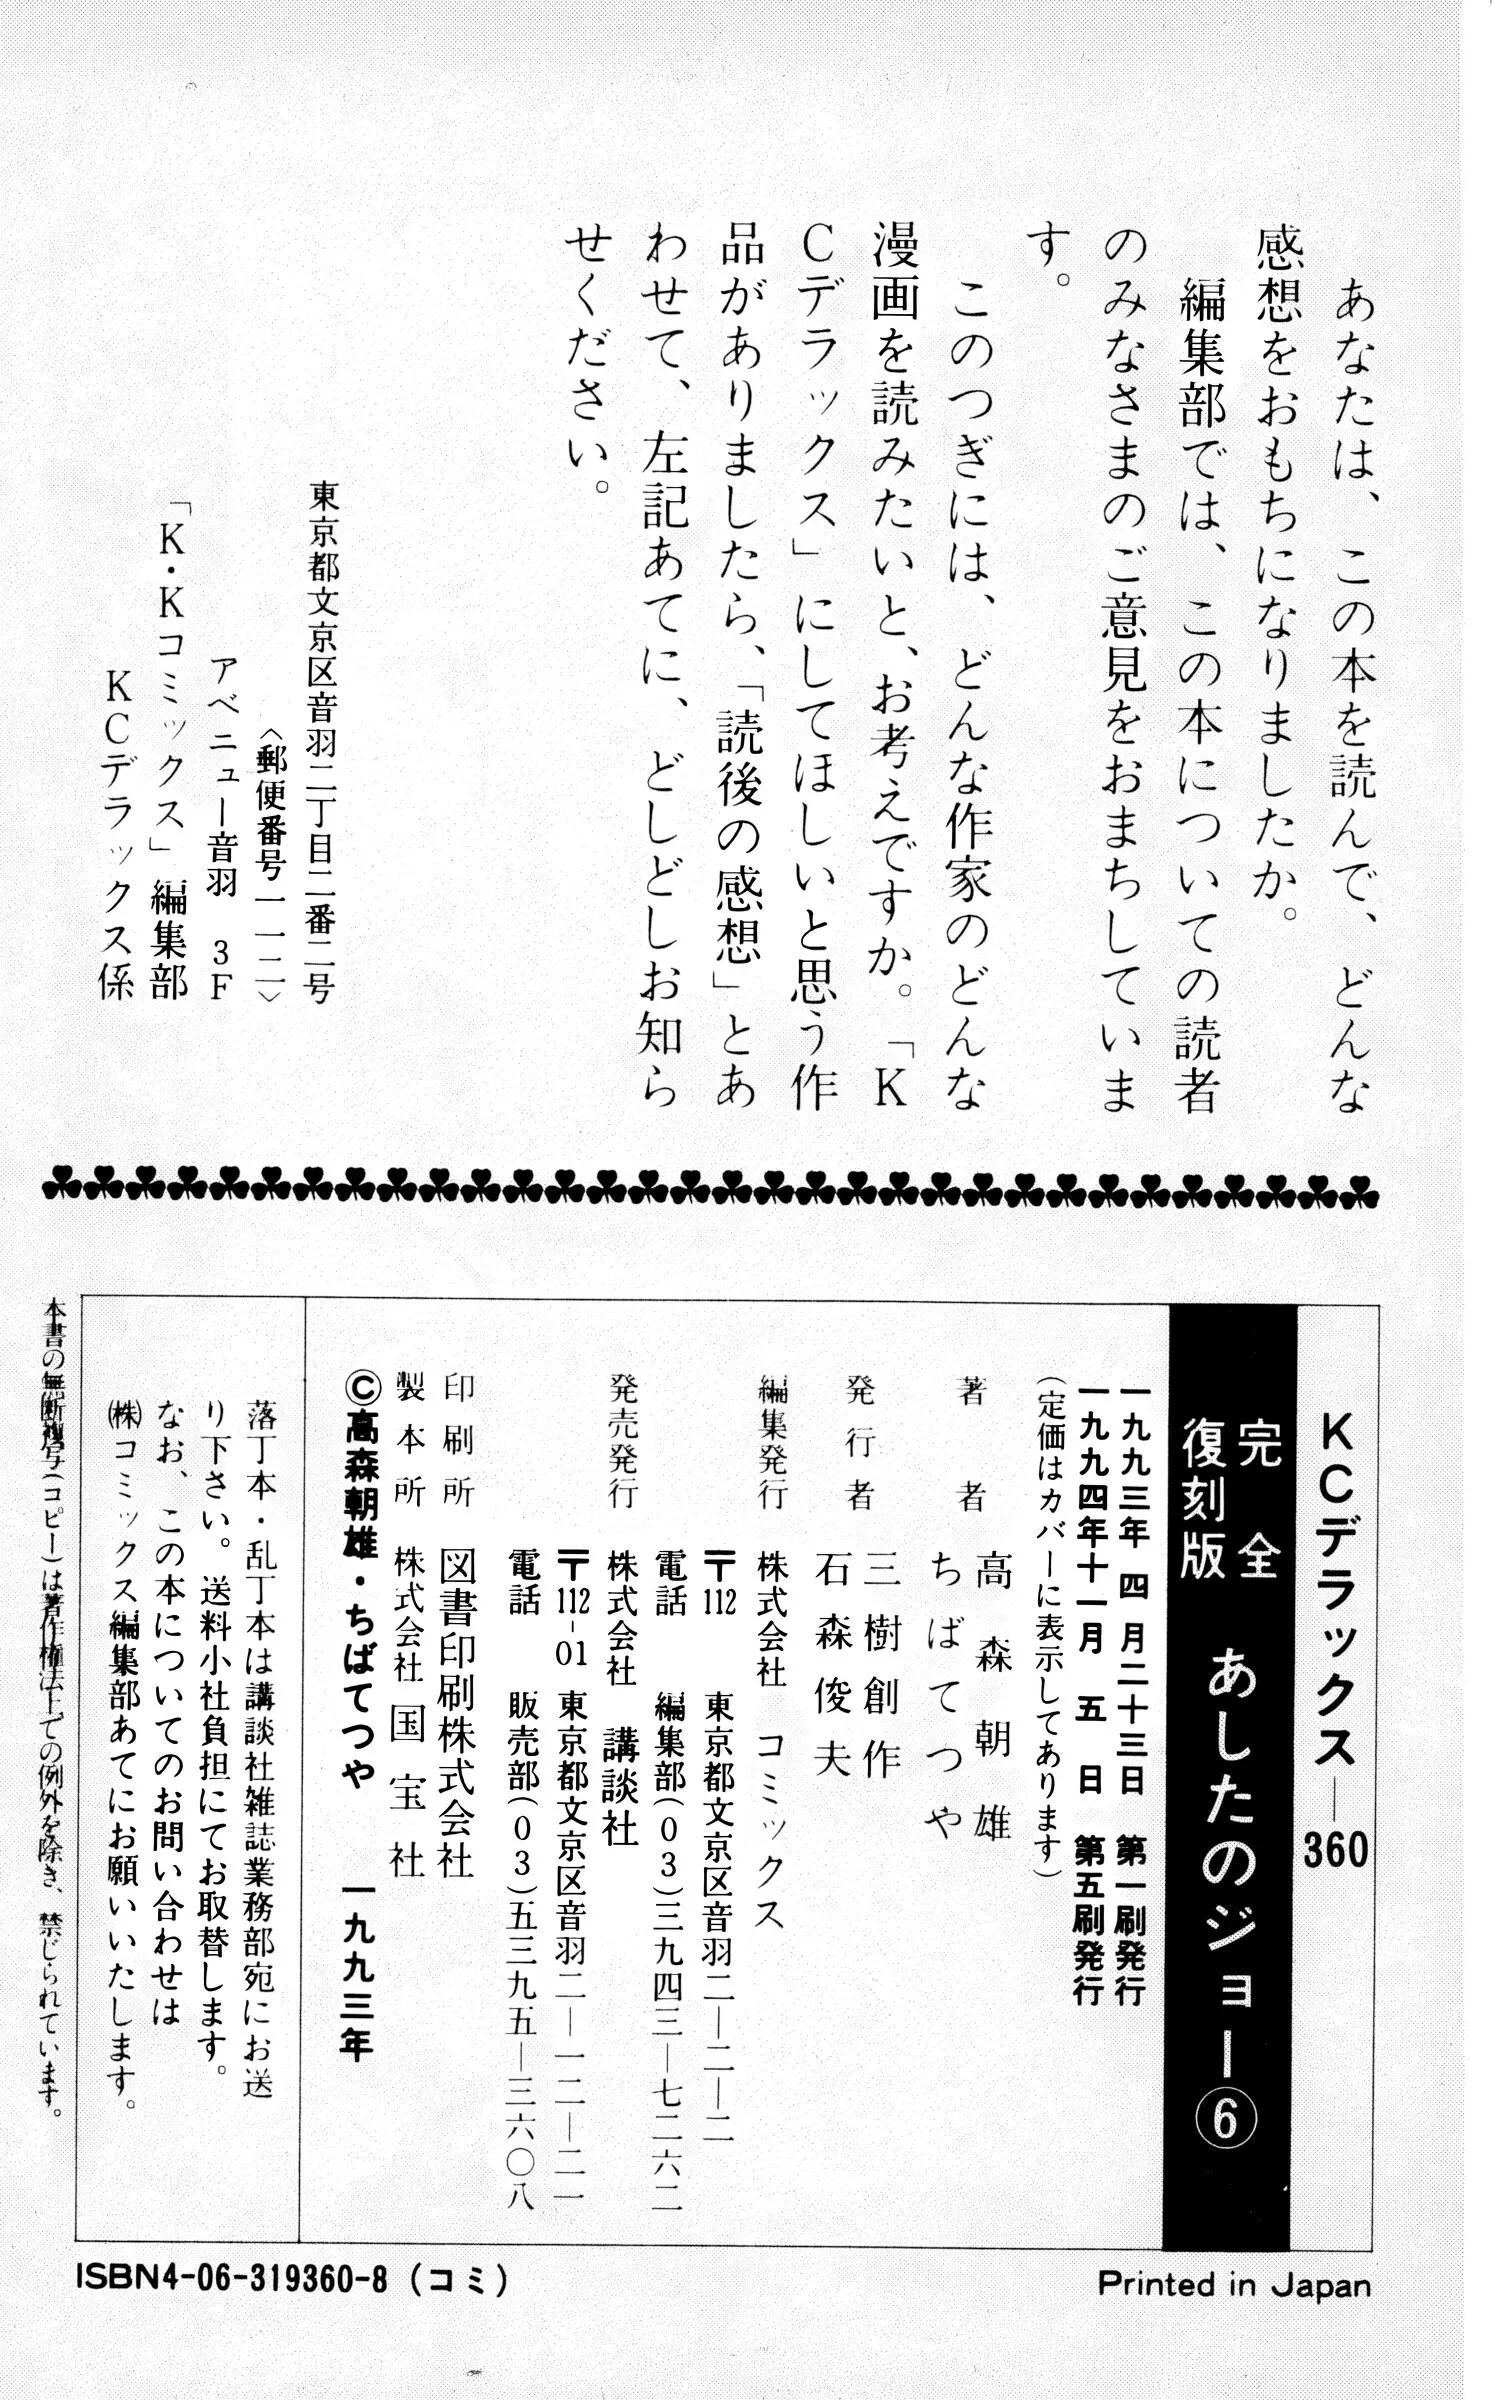 あなたは、この本を読んで、どんな
感想をおもちになりましたか。
編集部では、この本についての読者
のみなさまのご意見をおまちしていま
す。
このつぎには、どんな作家のどんな
漫画を読みたいと、お考えですか。「K
Cデラックス」にしてほしいと思う作
品がありましたら、「読後の感想」とあ
わせて、左記あてに、どしどしお知ら
せください。
東京都文京区音羽二丁目二番二号
〈郵便番号一一二〉
アベニュー音羽 3F
「K・Kコミックス」編集部
KCデラックス係
KCデラックス—360
完全
復刻版
あしたのジョー⑥
一九九三年 四月二十三日 第一刷発行
一九九四年十一月 五 日 第五刷発行
(定価はカバーに表示してあります)
著者 高森朝雄
ちばてつや
発行者 三樹創作
石森俊夫
編集発行 株式会社 コミックス
〒112 東京都文京区音羽二—二—二
電話 編集部(03)三九四三—七二六二
発売発行 株式会社 講談社
〒112-01 東京都文京区音羽二—一二—二一
電話 販売部(03)五三九五—三六〇八
印刷所 図書印刷株式会社
製本所 株式会社 国宝社
©高森朝雄・ちばてつや 一九九三年
落丁本・乱丁本は講談社雑誌業務部宛にお送
り下さい。送料小社負担にてお取替します。
なお、この本についてのお問い合わせは
㈱コミックス編集部あてにお願いいたします。
本書の無断複写(コピー)は著作権法上での例外を除き、禁じられています。
ISBN4-06-319360-8 (コミ)
Printed in Japan